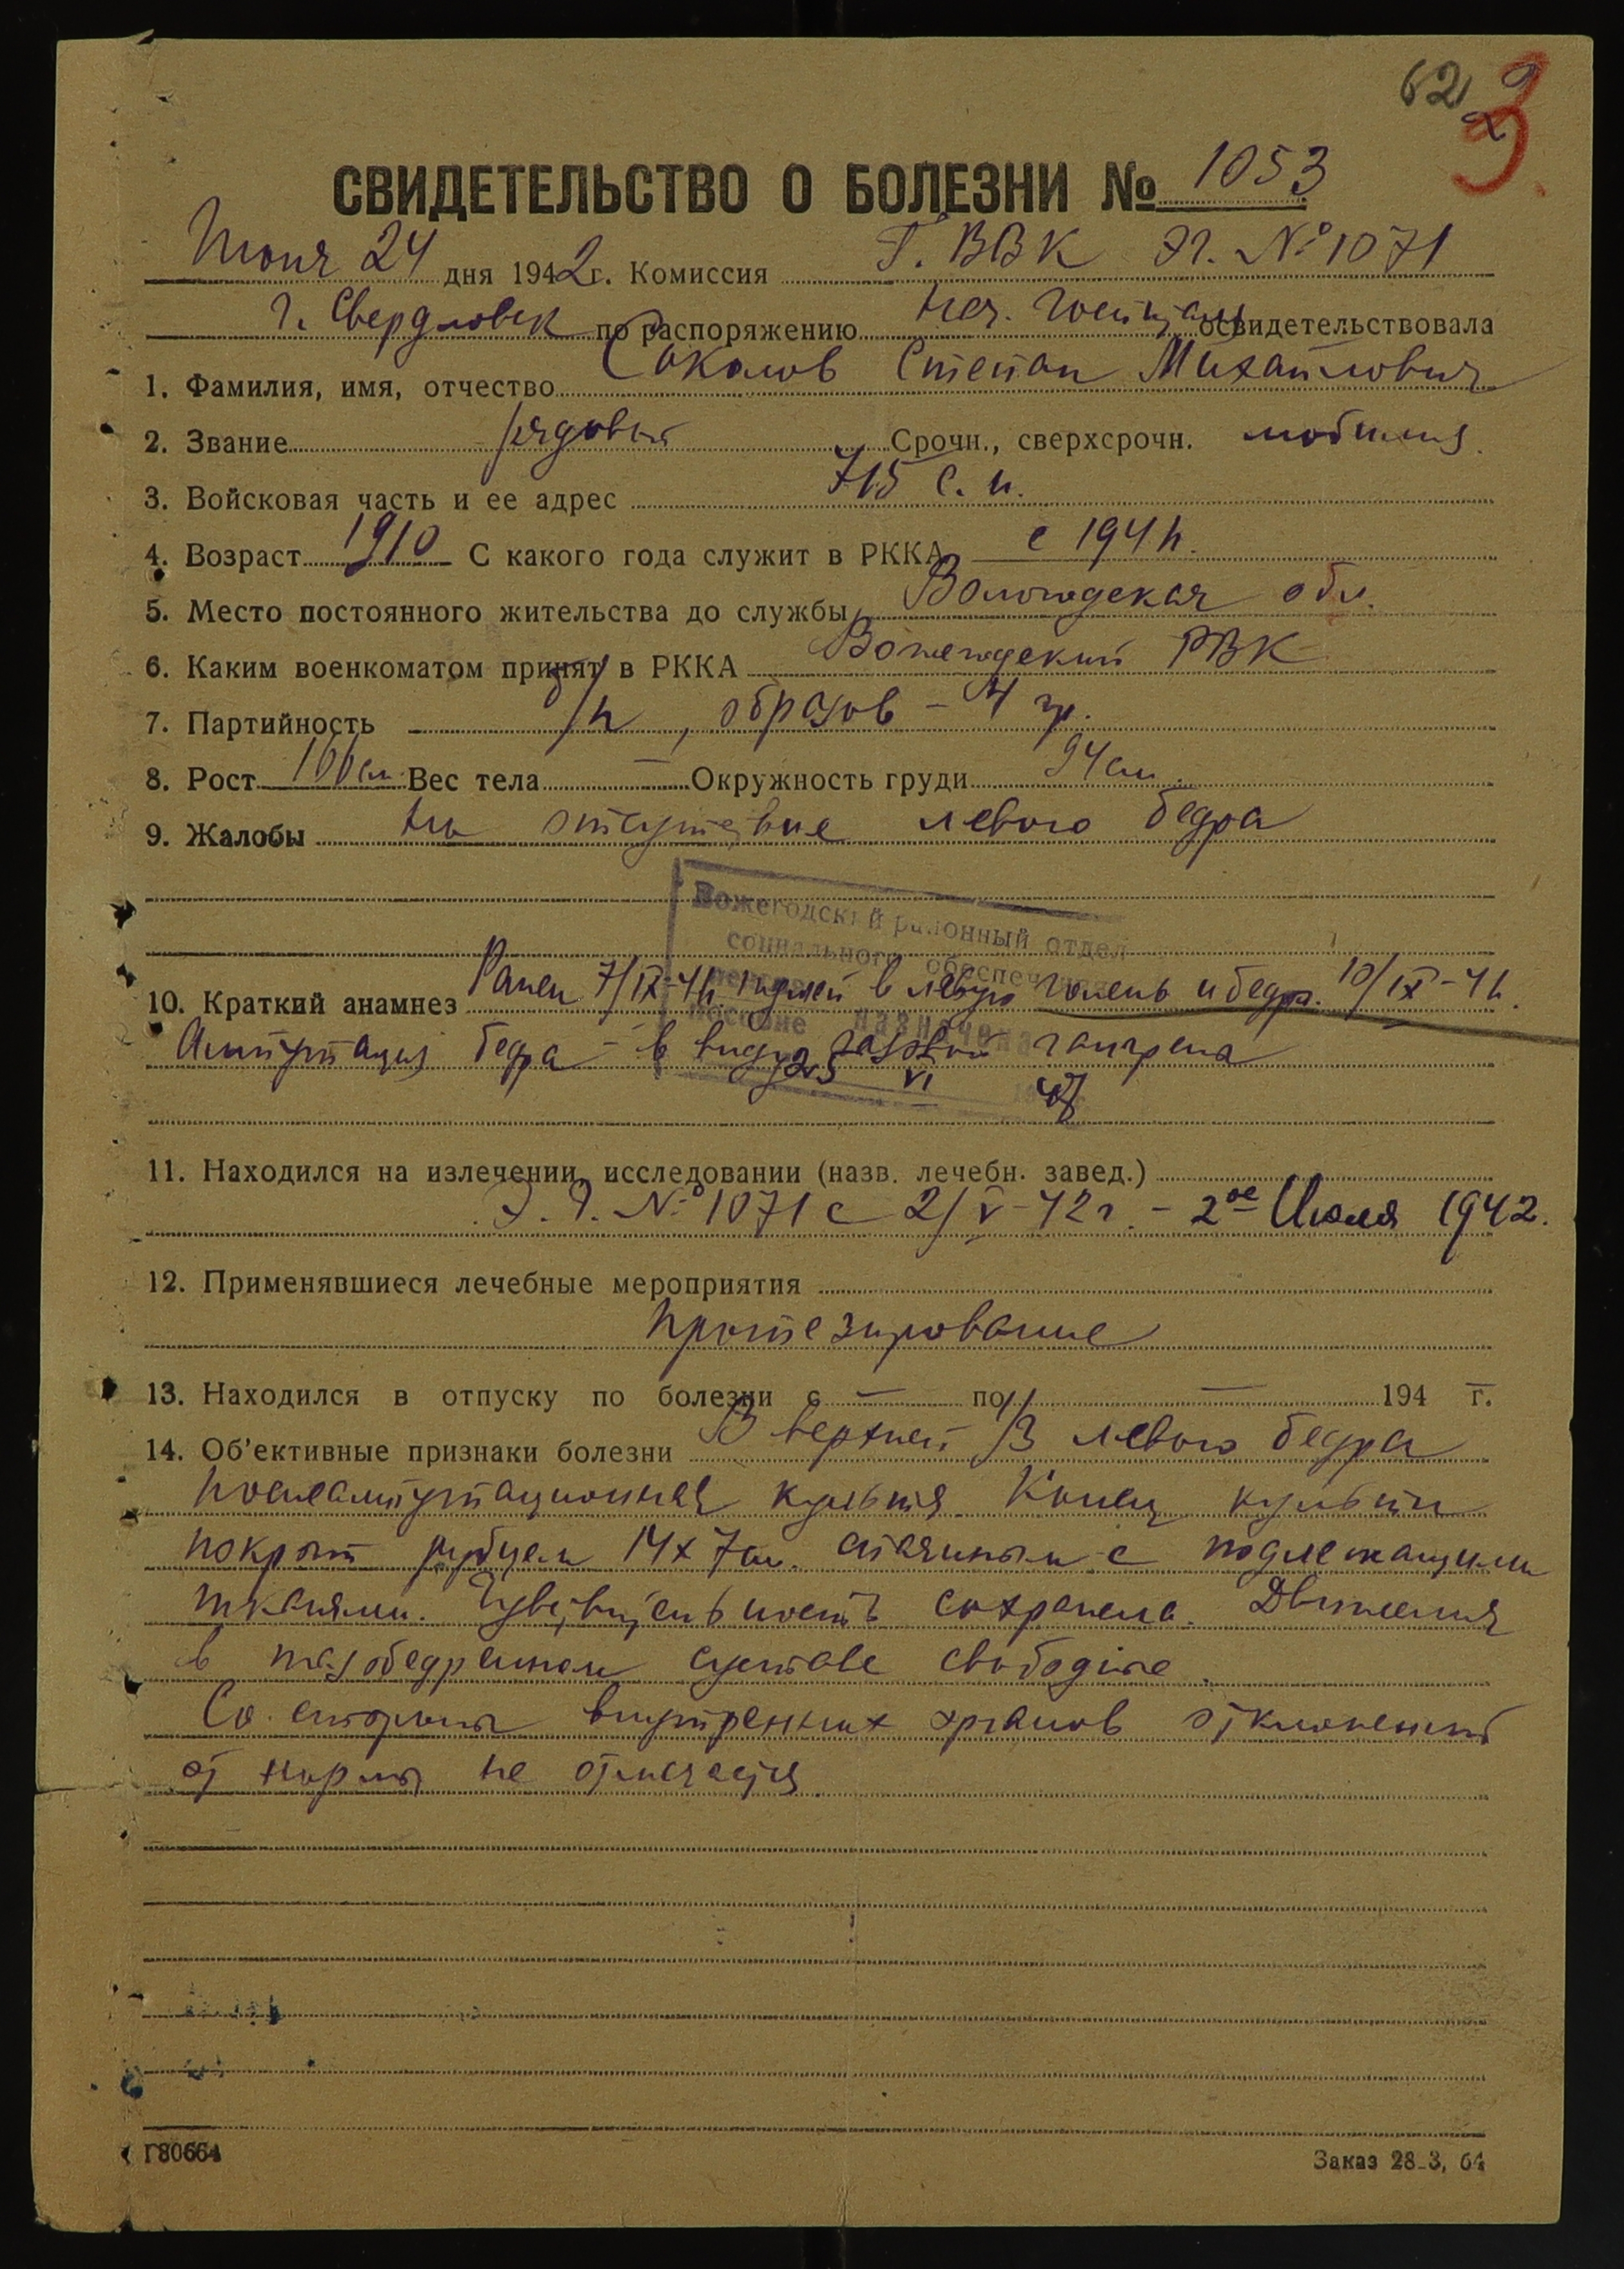 62 2 3.
СВИДЕТЕЛЬСТВО О БОЛЕЗНИ № 1053
Июня 24 дня 1942 г. Комиссия Г. ВВК ЭГ. № 1071
г. Свердловск по распоряжению нач. госпиталя освидетельствовала
1. Фамилия, имя, отчество Соколов Степан Михайлович
2. Звание рядовый Срочн., сверхсрочн. мобилиз.
3. Войсковая часть и ее адрес 715 с. п.
4. Возраст 1910 С какого года служит в РККА с 1941 г.
5. Место постоянного жительства до службы Вологодская обл.
6. Каким военкоматом принят в РККА Вожегодский РВК
7. Партийность б/п, образов – 4 гр.
8. Рост 166 см Вес тела — Окружность груди 94 см.
9. Жалобы на отсутствие левого бедра
Вожегодский районный отдел
социального обеспечения
пособие назначена
25 VI
10. Краткий анамнез Ранен 7/IX-41г. пулей в левую голень и бедро. 10/IX-41г.
Ампутация бедра – в виду газовой гангрена
11. Находился на излечении, исследовании (назв. лечебн. завед.)
Э. Г. № 1071 с 2/V-42 г. – 2ое Июля 1942.
12. Применявшиеся лечебные мероприятия
протезирование
13. Находился в отпуску по болезни с — по — 194 г.
14. Об'ективные признаки болезни В верхней 1/3 левого бедра
послеампутационная культя. Конец культи
покрыт рубцем 14х7 см. спаянным с подлежащими
тканями. Чувствительность сохранена. Движения
в тазобедренном суставе свободные.
Со стороны внутренних органов отклонений
от нормы не отмечается
Г80664
Заказ 28-3, 64